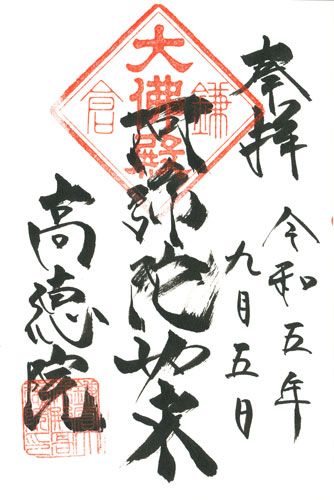 奉拝
令和五年
九月五日
鎌倉
大佛殿
阿弥陀如来
高徳院